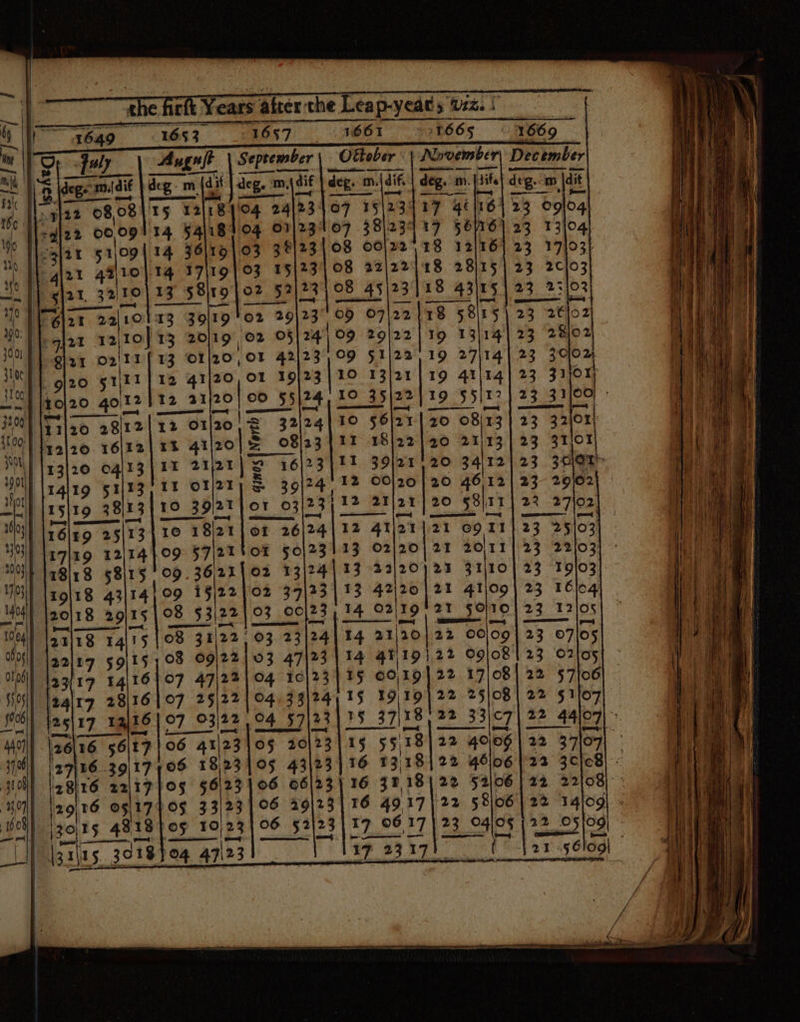 the first Years after the Leap-years viz.
1649 1653 1657 1661 1665 1669
Days July August September October November December
deg. m. dif deg. m dif deg. m. dif deg. m. dif. deg. m. dife deg. m dif
1 22 08 08 15 12 18 04 24 23 07 15 23 17 16 23 09 04
2 22 00 09 14 54 18 04 01 23 07 38 23 17 56 16 23 13 04
3 21 51 09 14 36 19 03 38 23 08 00 22 18 12 16 23 17 03
4 21 42 10 14 17 19 03 15 23 08 22 22 18 28 15 23 20 03
5 21 32 10 13 58 19 02 52 23 08 45 23 18 43 15 23 23 03
6 21 22 10 13 39 19 02 29 23 09 07 22 18 58 15 23 26 02
7 21 12 10 13 20 19 02 05 24 09 29 22 19 13 14 23 28 02
8 21 02 11 13 01 20 01 42 23 09 51 22 19 27 14 23 30 02
9 20 51 11 12 41 20 01 19 23 10 13 21 19 41 14 23 31 01
10 20 40 12 12 21 20 00 55 24 10 35 22 19 55 13 23 31 00
11 20 28 12 12 01 20 North 32 24 10 56 21 20 08 13 23 32 01
12 20 16 12 11 41 20 08 23 11 18 22 20 21 13 23 31 01
13 20 04 13 11 21 21 South 16 23 11 39 21 20 34 12 23 30 01
14 19 51 13 11 01 21 39 24 12 00 20 20 46 12 23 29 02
15 19 38 13 10 39 21 01 03 23 12 21 21 20 58 11 23 27 02
16 19 25 13 10 18 21 01 26 24 12 41 21 21 09 11 23 25 03
17 19 12 14 09 57 21 01 50 23 13 02 20 21 20 11 23 22 03
18 18 58 15 09 36 21 02 13 24 13 22 20 21 31 10 23 19 03
19 18 43 14 09 15 22 02 37 23 13 42 20 21 41 09 23 16 04
20 18 29 15 08 53 22 03 00 23 14 02 19 21 50 10 23 12 05
21 18 14 15 08 31 22 03 23 24 14 21 20 22 00 09 23 07 05
22 17 59 15 08 09 22 03 47 23 14 41 19 22 09 08 23 02 05
23 17 14 16 07 47 22 04 10 23 15 00 19 22 17 08 22 57 06
24 17 28 16 07 25 22 04 33 24 15 19 19 22 25 08 22 51 07
25 17 12 16 07 03 22 04 57 23 15 37 18 22 33 07 22 44 07
26 16 56 17 06 41 23 05 20 23 15 55 18 22 40 06 22 37 07
27 16 39 17 06 18 23 05 43 23 16 13 18 22 46 06 22 30 08
28 16 22 17 05 56 23 06 06 23 16 31 18 22 52 06 22 22 08
29 16 05 17 05 33 23 06 29 23 16 49 17 22 58 06 22 14 09
30 15 48 18 05 10 23 06 52 23 17 06 17 23 04 05 22 05 09
31 15 30 18 04 47 23 17 23 17 21 56 09